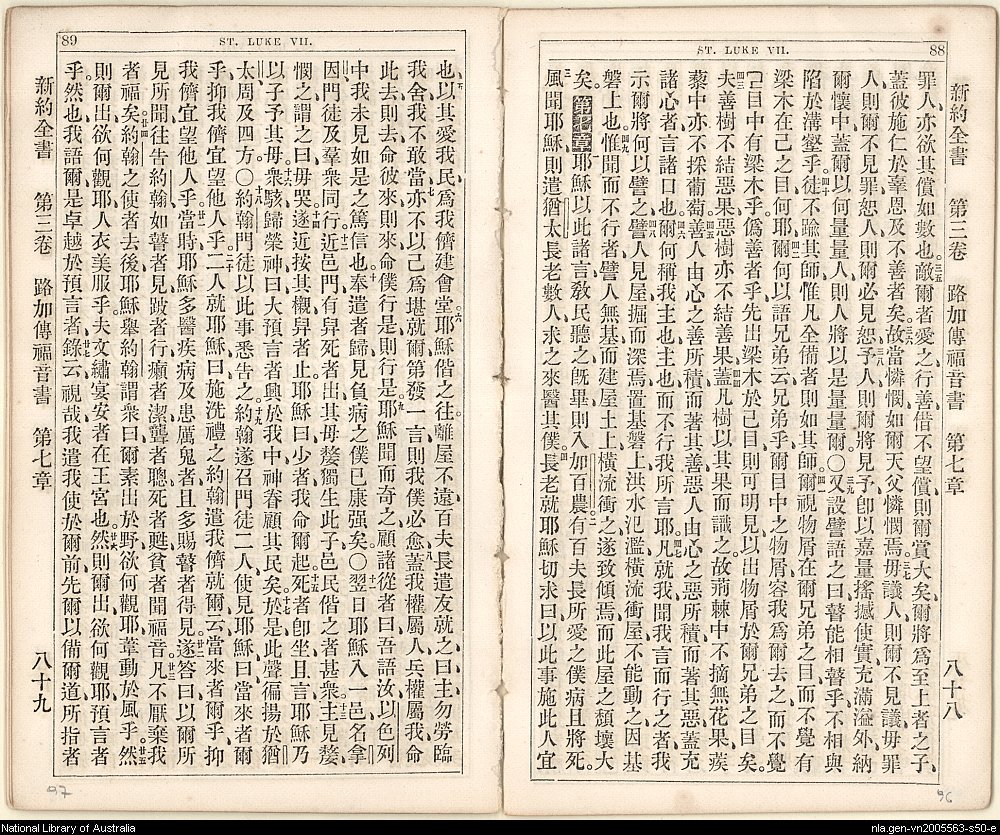 88
ST. LUKE VII.
新約全書 第三卷 路加傳福音書 第七章 八十八
罪人、亦欲其償如數也、三五敵爾者愛之、行善借不望償、則爾賞大矣、爾將爲至上者之子、
蓋彼施仁於辜恩及不善者矣、三六故當憐憫、如爾天父憐憫焉、三七毋議人、則爾不見議、毋罪
人、則爾不見罪、恕人、則爾必見恕、三八予人、則爾將見予、卽以嘉量、搖撼使實、充滿溢外、納
爾懷中、蓋爾以何量量人、則人將以是量量爾、〇三九又設譬語之曰、瞽能相瞽乎、不相與
陷於溝壑乎、四十徒不踰其師、惟凡全備者、則如其師、四一爾視物屑在爾兄弟之目、而不覺有
梁木在在己之目、何耶、四二爾何以語兄弟云、兄弟乎、爾目中之物屑、容我爲爾去之、而不覺
己目中有梁木乎、僞善者乎、先出梁木於己目、則可明見以出物屑於爾兄弟之目矣、
四三夫善樹不結惡果、惡樹亦不結善果、四四蓋凡樹以其果而識之、故荊棘中不摘無花果、蒺
藜中亦不採葡萄、四五善人由心之善所積、而著其善、惡人由心之惡所積、而著其惡、蓋充
諸心者、言諸口也、四六爾何稱我主也主也、而不行我所言耶、四七凡就我聞我言而行之者、我
示爾將何以譬之、四八譬人見屋掘而深焉、置基磐上、洪水氾濫、橫流衝屋、不能動之、因基
磐上也、四九惟聞而不行者、譬人無基而建屋土上、橫流衝之遂致傾焉、而此屋之頹壞大
矣、第七章一耶穌以此諸言敎民聽之、旣畢、則入加百農、二有百夫長、所愛之僕病且將死、
三風聞耶穌、則遣猶太長老數人、求之來醫其僕、四長老就耶穌、切求曰、以此事施此人宜
89
ST. LUKE VII.
新約全書 第三卷 路加傳福音書 第七章 八十九
也、五以其愛我民、爲我儕建會堂、六耶穌偕之往、離屋不遠、百夫長遣友就之曰、主、勿勞、臨
我舍、我不敢當、七亦不以己爲堪就爾、第發一言、則我僕必愈、八蓋我權屬人、兵權屬我、命
此去則去、命彼來則來、命僕行是則行是、九耶穌聞而奇之、顧諸從者曰、吾語汝、以色列
中、我未見如是之篤信也、十奉遣者歸、見負病之僕已康强矣、〇十一翌日耶穌入一邑、名拿
因、門徒及羣衆同行、十二近邑門、有舁死者出、其母嫠、獨生此子、邑民偕之者甚衆、十三主見嫠
憫之、謂之曰、毋哭、十四遂近按其櫬、舁者止、耶穌曰、少者、我命爾起、十五死者卽坐、且言、耶穌乃
以子予其母、十六衆駭、歸榮神曰、大預言者興於我中、神眷顧其民矣、十七於是此聲徧揚於猶
太周及四方、〇十八約翰門徒、以此事悉告之、十九約翰遂召門徒二人、使見耶穌曰、當來者爾
乎、抑我儕宜望他人乎、二十二人就耶穌曰、施洗禮之約翰、遣我儕就爾云、當來者爾乎、抑
我儕宜望他人乎、廿一當時耶穌多醫疾病、及患厲鬼者、且多賜瞽者得見、廿二遂答曰、以爾所
見所聞往告約翰、如瞽者見、跛者行、癩者潔、聾者聰、死者甦、貧者聞福音、廿三凡不厭棄我
者福矣、廿四約翰之使者去後、耶穌舉約翰謂衆曰、爾素出於野、欲何觀耶、葦動於風乎、廿五然
則爾出欲何觀耶、人衣美服乎、夫文繡宴安者、在王宮也、廿六然則爾出欲何觀耶、預言者
乎、然也、我語爾、是卓越於預言者、廿七錄云、視哉、我遣我使於爾前、先爾以備爾道、所指者
97
96
National Library of Australia
nla.gen-vn2005563-s50-e